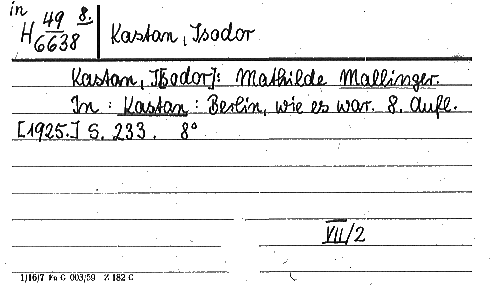 in
H 49/6638 8. Kastan, Isodor
Kastan, I[sodor]: Mathilde Mallinger.
In: Kastan: Berlin, wie es war. 8. Aufl.
[1925.] S. 233. 8°
VII/2
1/16/7 Fu G 003/59 Z 182 C